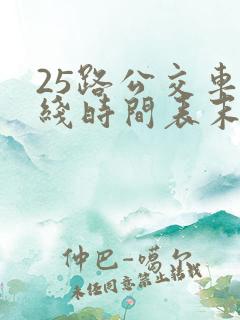 25路公交車
綫時間表末
仲巴-噶尔
未经同意禁止转载